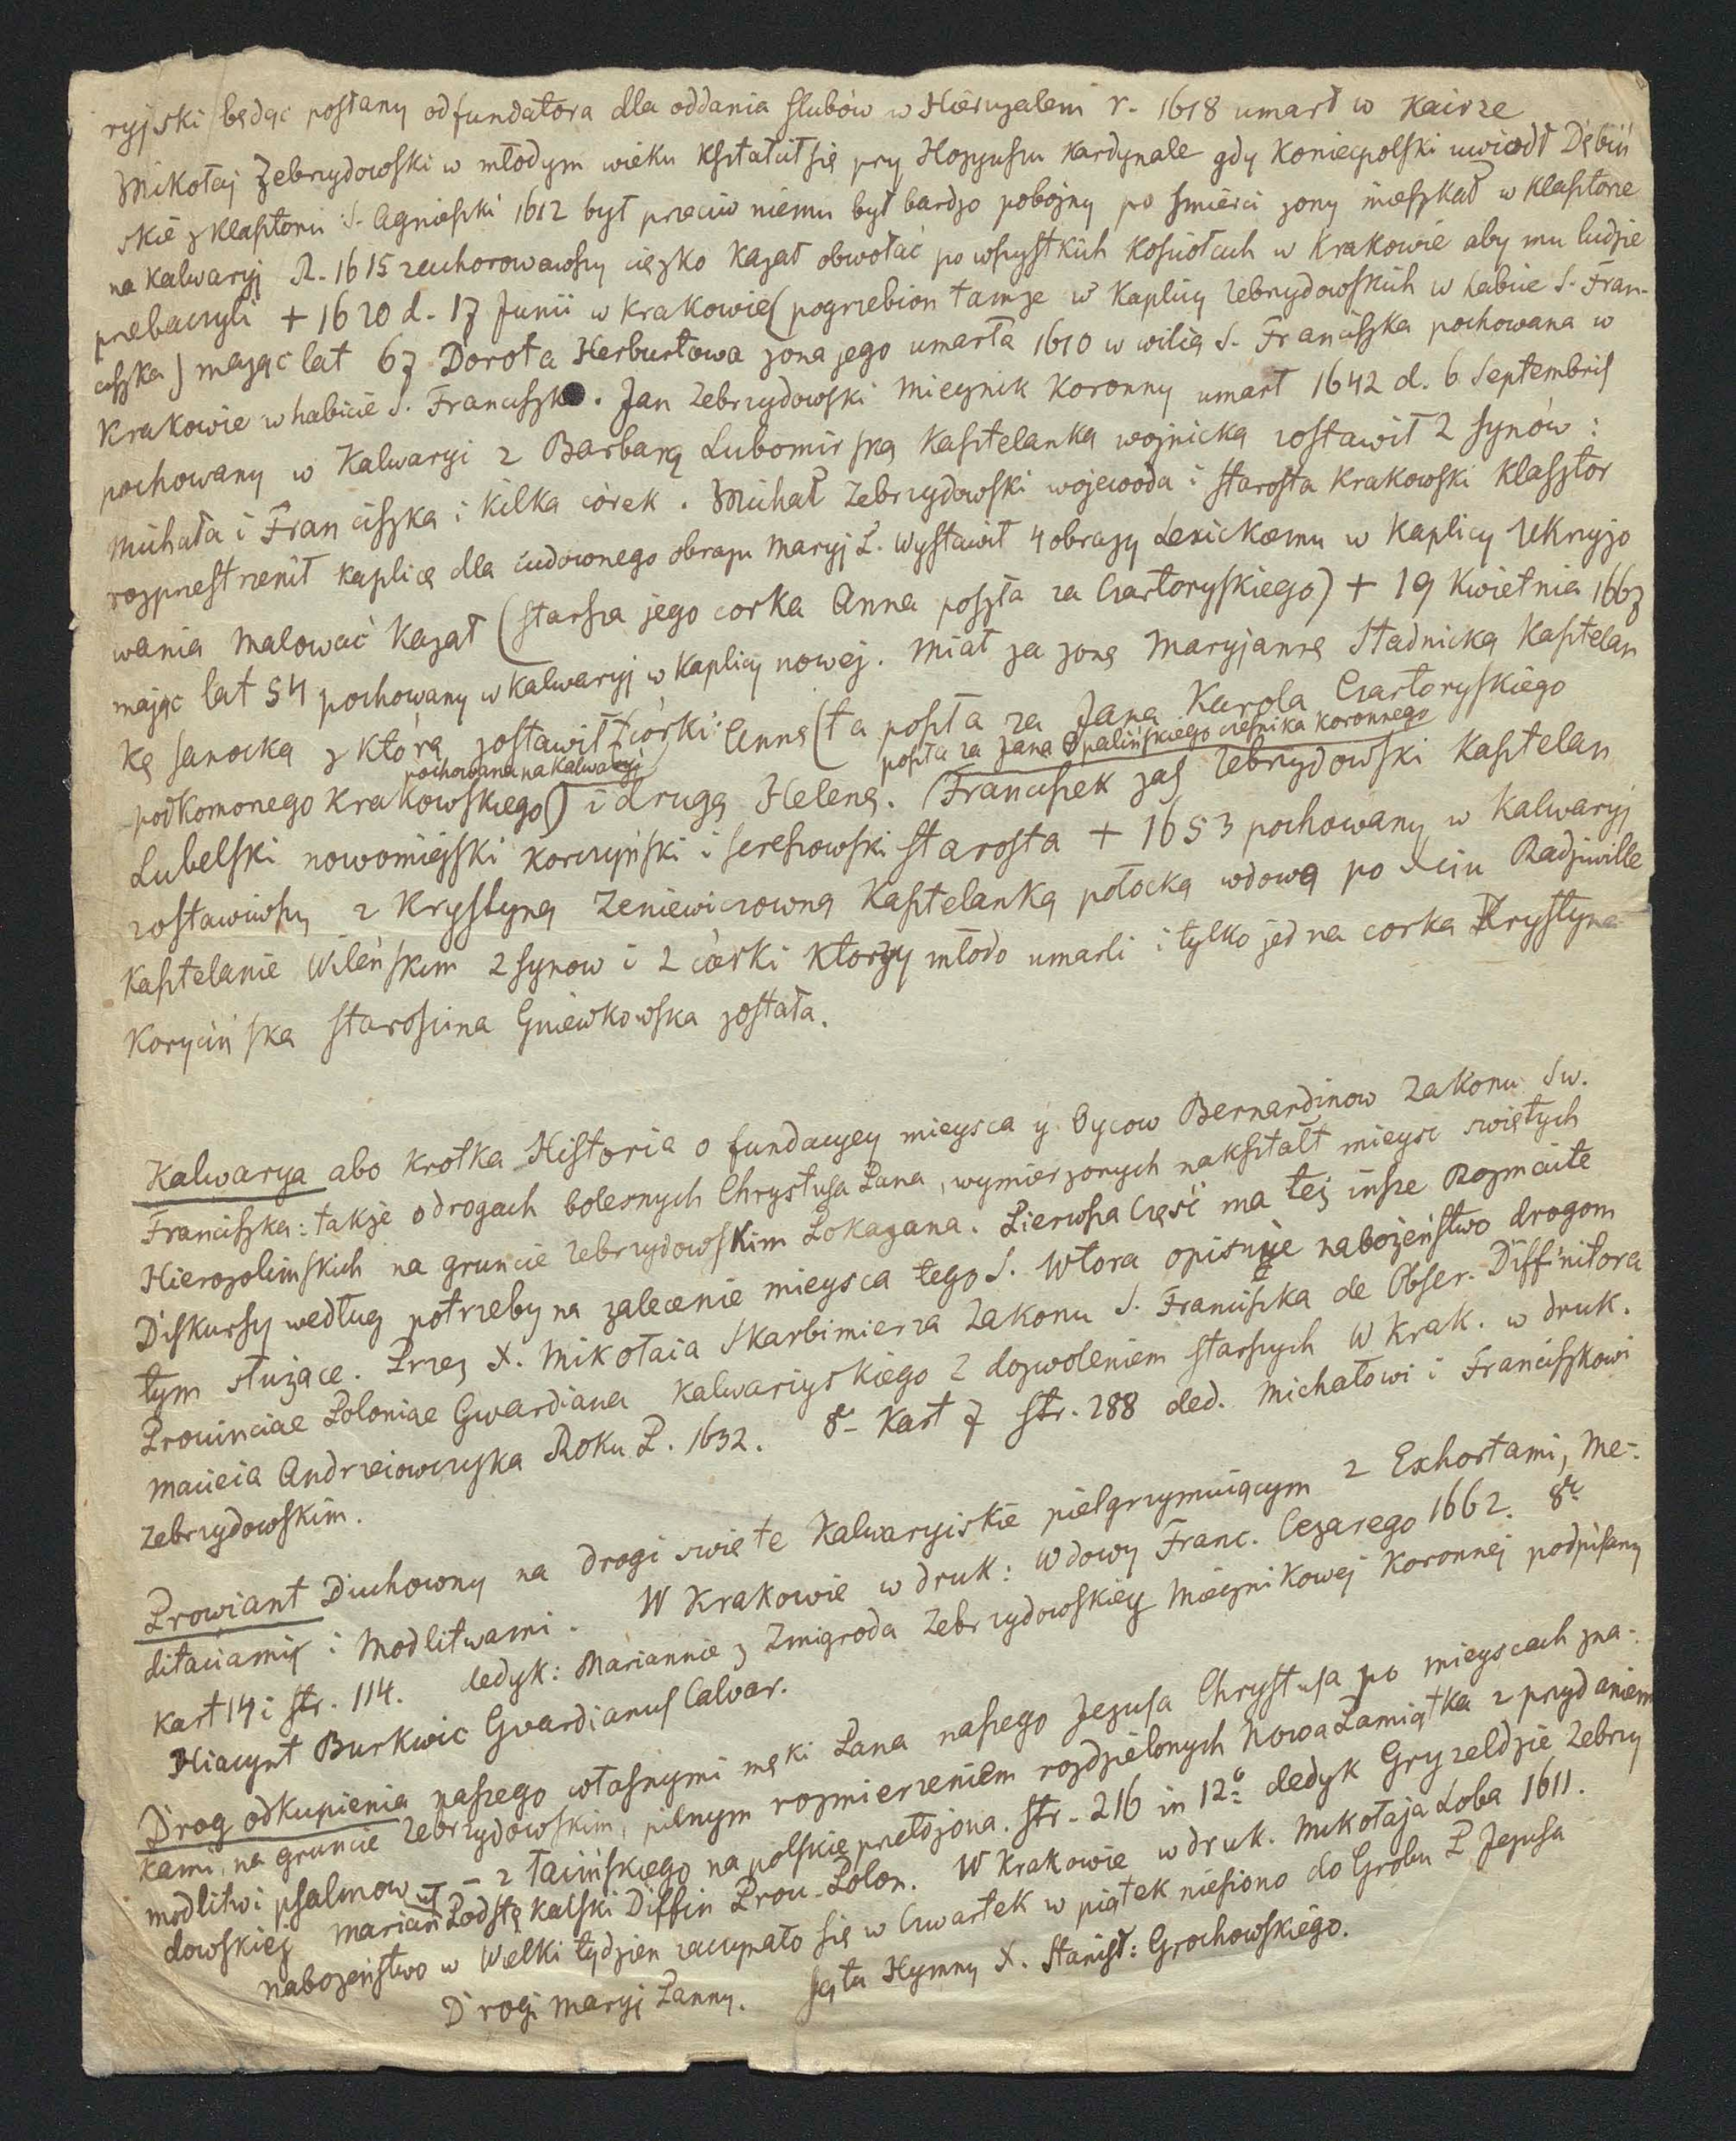 ryjski będąc posłany od fundatora dla oddania slubów w Hieruzalem r. 1618 umarł w Kairze
Mikołaj Zebrzydowski w młodym wieku kształcił się przy Hozyuszu Kardynale gdy Koniecpolski uwiodł Dębiń
skie z klasztoru S. Agnieszki 1612 był przeciw niemu był bardzo pobożny po śmierci zony mieszkał w klasztorze
na Kalwaryj R. 1615 zachorowawszy ciężko kazał obwołać po wszystkich kosciołach w Krakowie aby mu ludzie
przebaczyli + 1620 d. 17 Junii w Krakowie (pogrzebion tamze w Kaplicy Zebrzydowskich w habicie S. Fran-
ciszka) mając lat 67 Dorota Herburtowa zona jego umarła 1610 w wilią S. Franciszka pochowana w
Krakowie w habicie S. Franciszka. Jan Zebrzydowski Miecznik Koronny umarł 1642 d. 6 Septembris
pochowany w Kalwaryi z Barbarą Lubomirską Kasztelanką wojnicką zostawił 2 synów:
Michała i Franciszka i kilka córek. Michał Zebrzydowski wojewoda i starosta Krakowski klasztor
rozprzestrzenił kaplicę dla cudownego obrazu Maryj P. wystawił 4 obrazy Lexickiemu w Kaplicy Ukrzyżo
wania malować kazał (starsza jego corka Anna poszła za Czartoryskiego) + 19 Kwietnia 1667
mając lat 54 pochowany w Kalwaryj w Kaplicy nowej. Miał za zonę Maryjannę Stadnicką Kasztelan
kę sanocką z którą zostawił 2 córki: Annę (ta poszła za Jana Karola Czartoryskiego
pochowana na Kalwaryi poszła za Jana Opalińskiego cześnika koronnego
podkomorzego Krakowskiego) i drugą Helenę. Franciszek zaś Zebrzydowski Kasztelan
Lubelski nowomiejski korczyński i sereszowski starosta + 1653 pochowany w Kalwaryj
zostawiwszy z Krystyną Zeniewiczowną Kasztelanką połocką wdową po Xciu Radziwille
Kasztelanie Wileńskim 2 synow i 2 córki którzy młodo umarli i tylko jedna corka Krystyna
Korycińska starościna Gniewkowska została.
Kalwarya abo krotka Historia o fundacyey mieysca y Oycow Bernardinow Zakonu Sw.
Franciszka: także o drogach bolesnych Chrystusa Pana, wymierzonych nakształt mieysc swiętych
Hierozolimskich na gruncie Zebrzydowskim Pokazana. Pierwsza Część ma też insze Rozmaite
Diskursy według potrzeby na zalecenie mieysca tego S. Wtora opisuie nabożeństwo drogom
tym służące. Przez X. Mikołaia Skarbimierza Zakonu S. Franciszka de Obser. Diffinitora
Prouinciae Poloniae Gwardiana Kalwaryskiego Z dozwoleniem starszych W Krak. w druk.
Macieia Andrzeiowczyka Roku P. 1632. 8º Kart 7 str. 288 ded. Michałowi i Franciszkowi
Zebrzydowskim.
Prowiant Duchowny na drogi swięte Kalwaryiskie pielgrzymuiącym z Exhortami, Me-
ditaciami i Modlitwami. W Krakowie w druk: Wdowy Franc. Cezarego 1662. 8º
Kart 14 i str. 114. dedyk: Mariannie z Zmigroda Zebrzydowskiey Miecznikowej Koronnej podpisany
Hiacynt Burkwic Gvardianus Calvar.
Drog odkupienia naszego własnymi męki Pana naszego Jezusa Chrystusa po mieyscach zna-
kami, na gruncie Zebrzydowskim, pilnym rozmierzeniem rozdzielonych Nowa Pamiątka z przydaniem
modlitw i psalmow — z łacińskiego na polskie przełożona. Str. 216 in 12º dedyk Gryzeldzie Zebrzy
dowskiej Marian Postękalski Diffin Prou. Polon. W Krakowie w druk. Mikołaja Loba 1611.
Nabożeństwo w Wielki tydzien zaczynało się w Czwartek w piątek niesiono do Grobu P Jezusa
Drogi Maryj Panny. Są tu Hymny X. Stanisł: Grochowskiego.